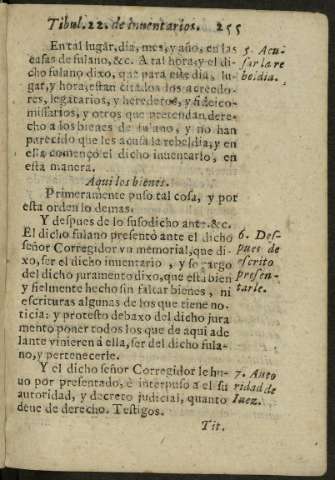 Tibul. 22. de inuentarios. 255
En tal lugar, dia, mes, y año, en las
casas de fulano, &c. A tal hora, y el di-
cho fulano dixo, que para este dia, lu-
gar, y hora, estan citados los acreedo-
res, legatarios, y herederos, y fideico-
missarios, y otros que pretendan dere-
cho a los bienes de fulano, y no han
parecido que les acusa la rebeldia, y en
ella començò el dicho inuentario, en
esta manera.
5. Acu-
sar la re
beldia.
Aqui los bienes.
Primeramente puso tal cosa, y por
esta orden lo demas.
Y despues de lo susodicho ante, &c.
El dicho fulano presentò ante el dicho
señor Corregidor vn memorial, que di-
xo, ser el dicho inuentario, y so cargo
del dicho juramento dixo, que està bien
y fielmente hecho sin faltar bienes, ni
escrituras algunas de los que tiene no-
ticia: y protesto debaxo del dicho jura
mento poner todos los que de aqui ade
lante vinieren á ella, ser del dicho fula-
no, y pertenecerle.
6. Des-
pues de
escrito
presen-
tarle.
Y el dicho señor Corregidor le hu-
uo por presentado, è interpuso a èl su
autoridad, y decreto judicial, quanto
deue de derecho. Testigos.
7. Auto
ridad de
Iuez.
Tit.